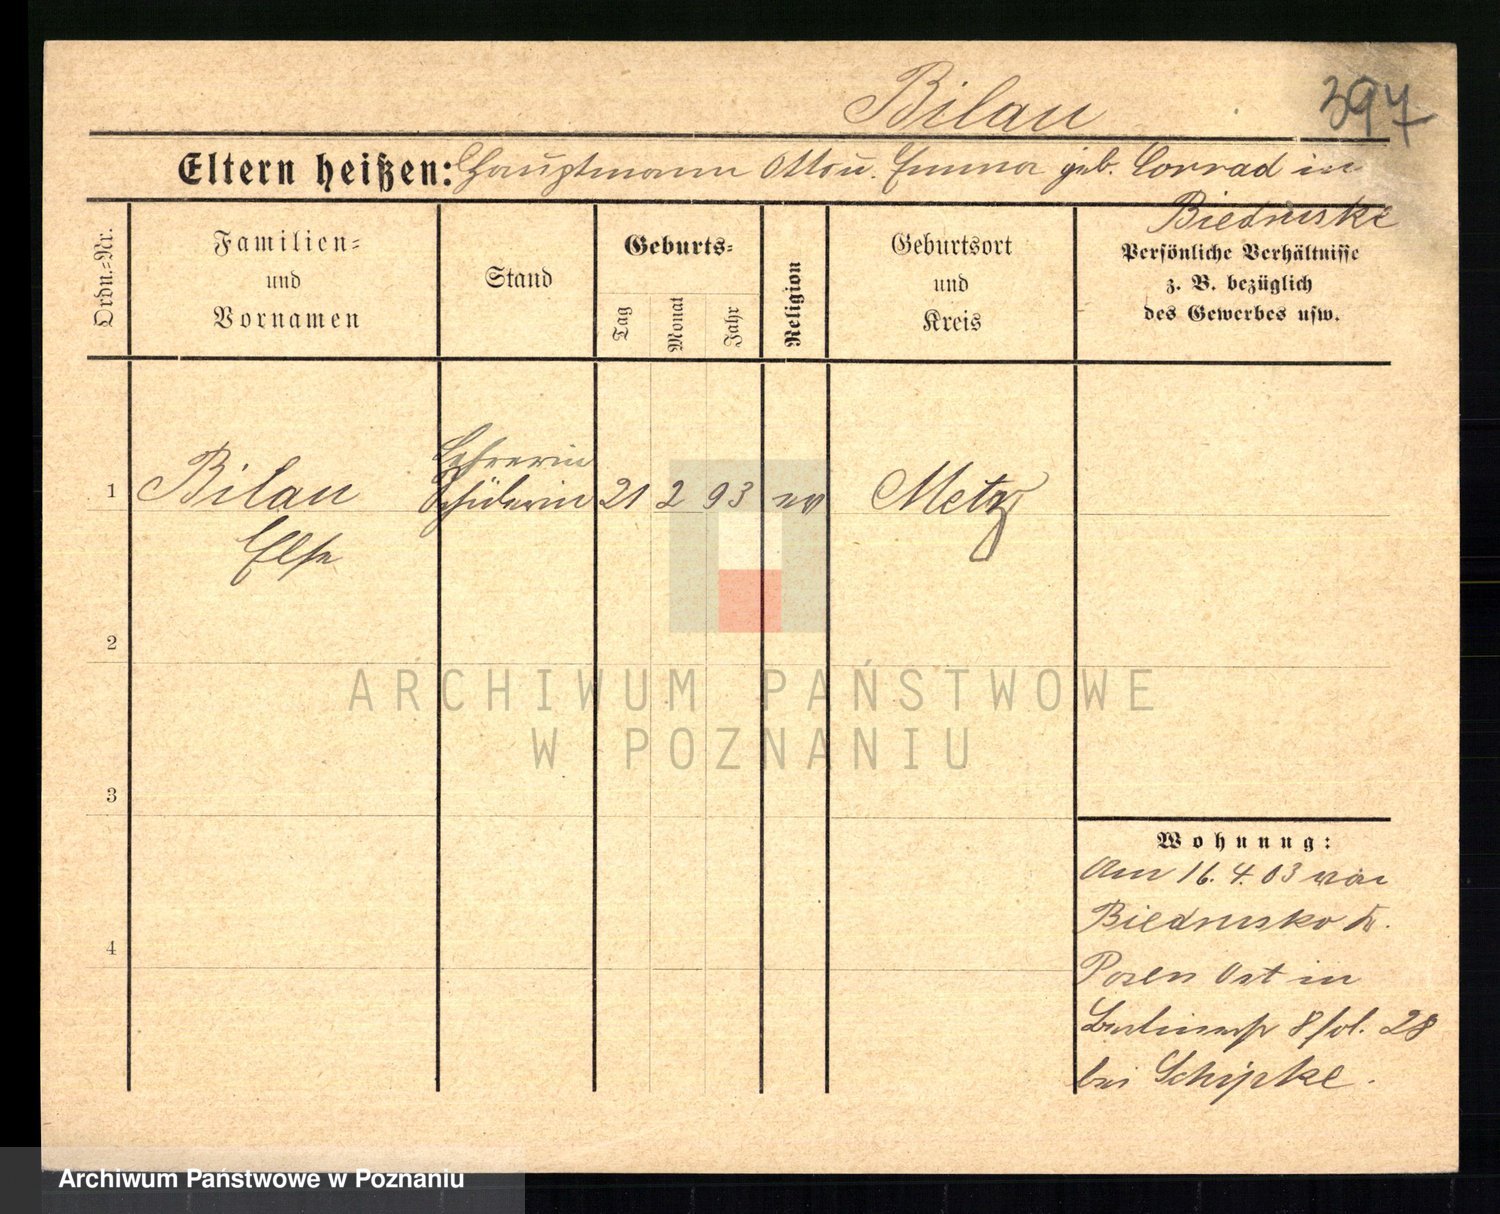 Bilau
397
Eltern heißen: Hauptmann Otto u. Emma geb. Conrad in
Biedrusko
Ordn.=Nr.
Familien=
und
Vornamen
Stand
Geburts=
Tag
Monat
Jahr
Religion
Geburtsort
und
Kreis
Persönliche Verhältnisse
z. B. bezüglich
des Gewerbes usw.
1
Bilau
Else
Lehrerin
Schülerin
21
2
93
ev
Metz
2
ARCHIWUM PAŃSTWOWE
W POZNANIU
3
4
Wohnung:
Am 16. 4. 03 von
Biedrusko n.
Posen Ost in
Berlinerstr 8 fol. 28
bei Schipke.
Archiwum Państwowe w Poznaniu